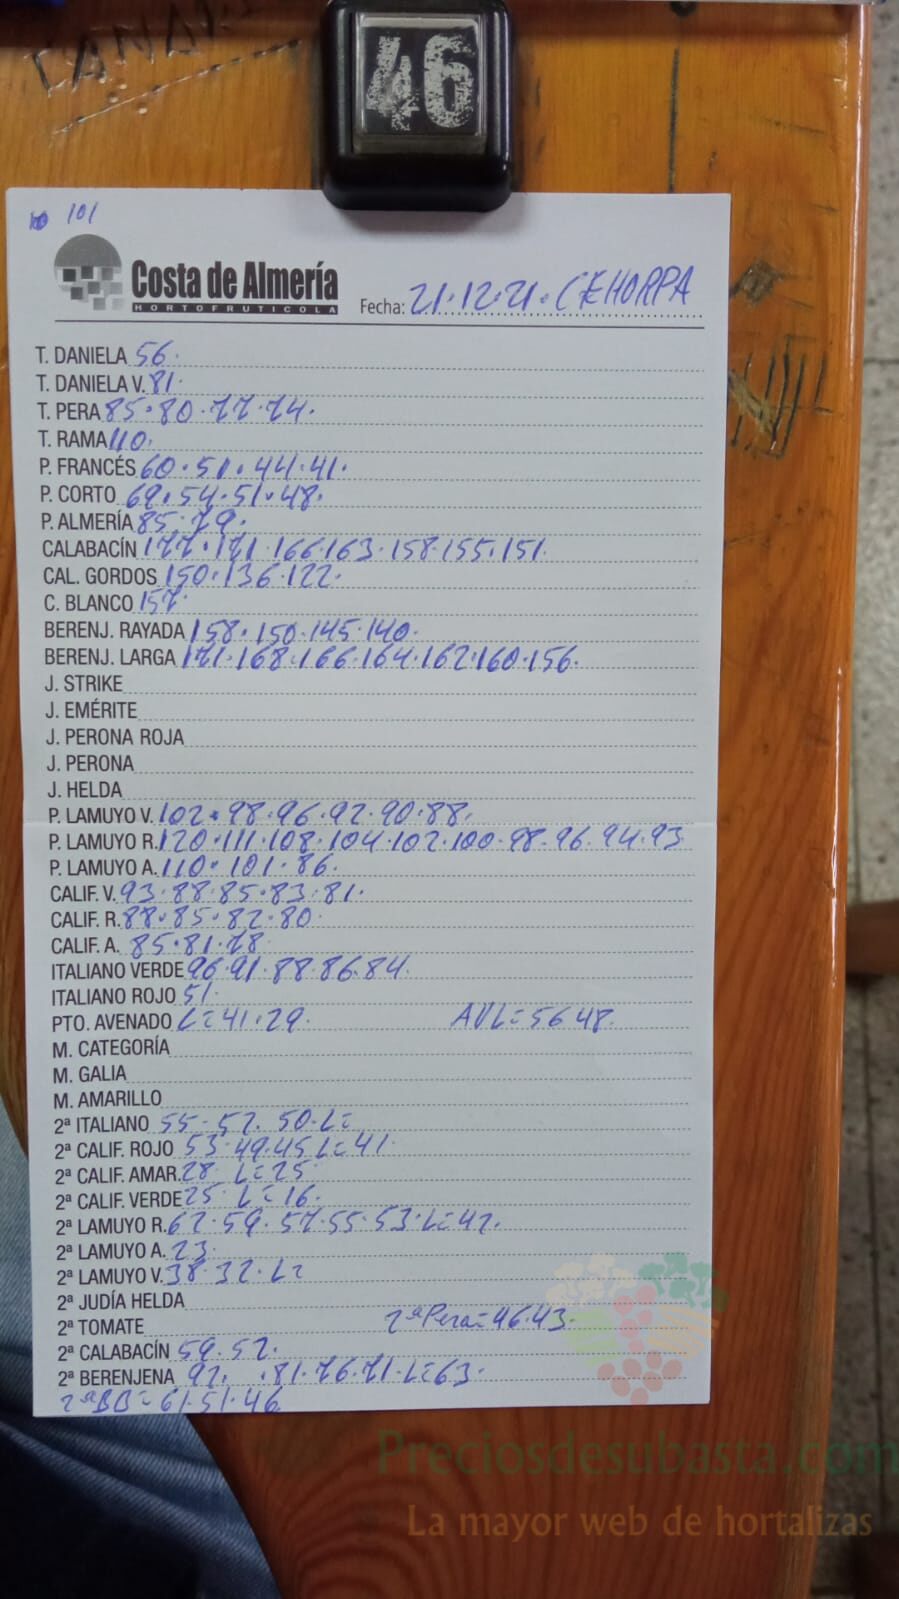 46
101
Costa de Almería
HORTOFRUTICOLA
Fecha: 21.12.21. CEHORPA
T. DANIELA 56.
T. DANIELA V. 81.
T. PERA 85.80.77.74.
T. RAMA 110.
P. FRANCÉS 60.51.44.41.
P. CORTO 69.54.51.48.
P. ALMERÍA 85.79.
CALABACÍN 177.171.166.163.158.155.151.
CAL. GORDOS 150.136.122.
C. BLANCO 157.
BERENJ. RAYADA 158.150.145.140.
BERENJ. LARGA 171.168.166.164.162.160.156.
J. STRIKE
J. EMÉRITE
J. PERONA ROJA
J. PERONA
J. HELDA
P. LAMUYO V. 102.98.96.92.90.88.
P. LAMUYO R. 120.111.108.104.102.100.98.96.94.93
P. LAMUYO A. 110.101.86.
CALIF. V. 93.88.85.83.81.
CALIF. R. 88.85.82.80
CALIF. A. 85.81.78
ITALIANO VERDE 96.91.88.86.84.
ITALIANO ROJO 51.
PTO. AVENADO L=41.29. AVL=56 48.
M. CATEGORÍA
M. GALIA
M. AMARILLO
2ª ITALIANO 55.52.50.L=
2ª CALIF. ROJO 53.49.45 L=41.
2ª CALIF. AMAR. 28. L=25.
2ª CALIF. VERDE 25. L=16.
2ª LAMUYO R. 62.59.57.55.53.L=42.
2ª LAMUYO A. 23.
2ª LAMUYO V. 38.32.L=
2ª JUDÍA HELDA
2ª TOMATE 2ªPera=46.43.
2ª CALABACÍN 59.52.
2ª BERENJENA 92. .81.76.71.L=63.
2ªBB=61.51.46
Preciosdesubasta.com
La mayor web de hortalizas